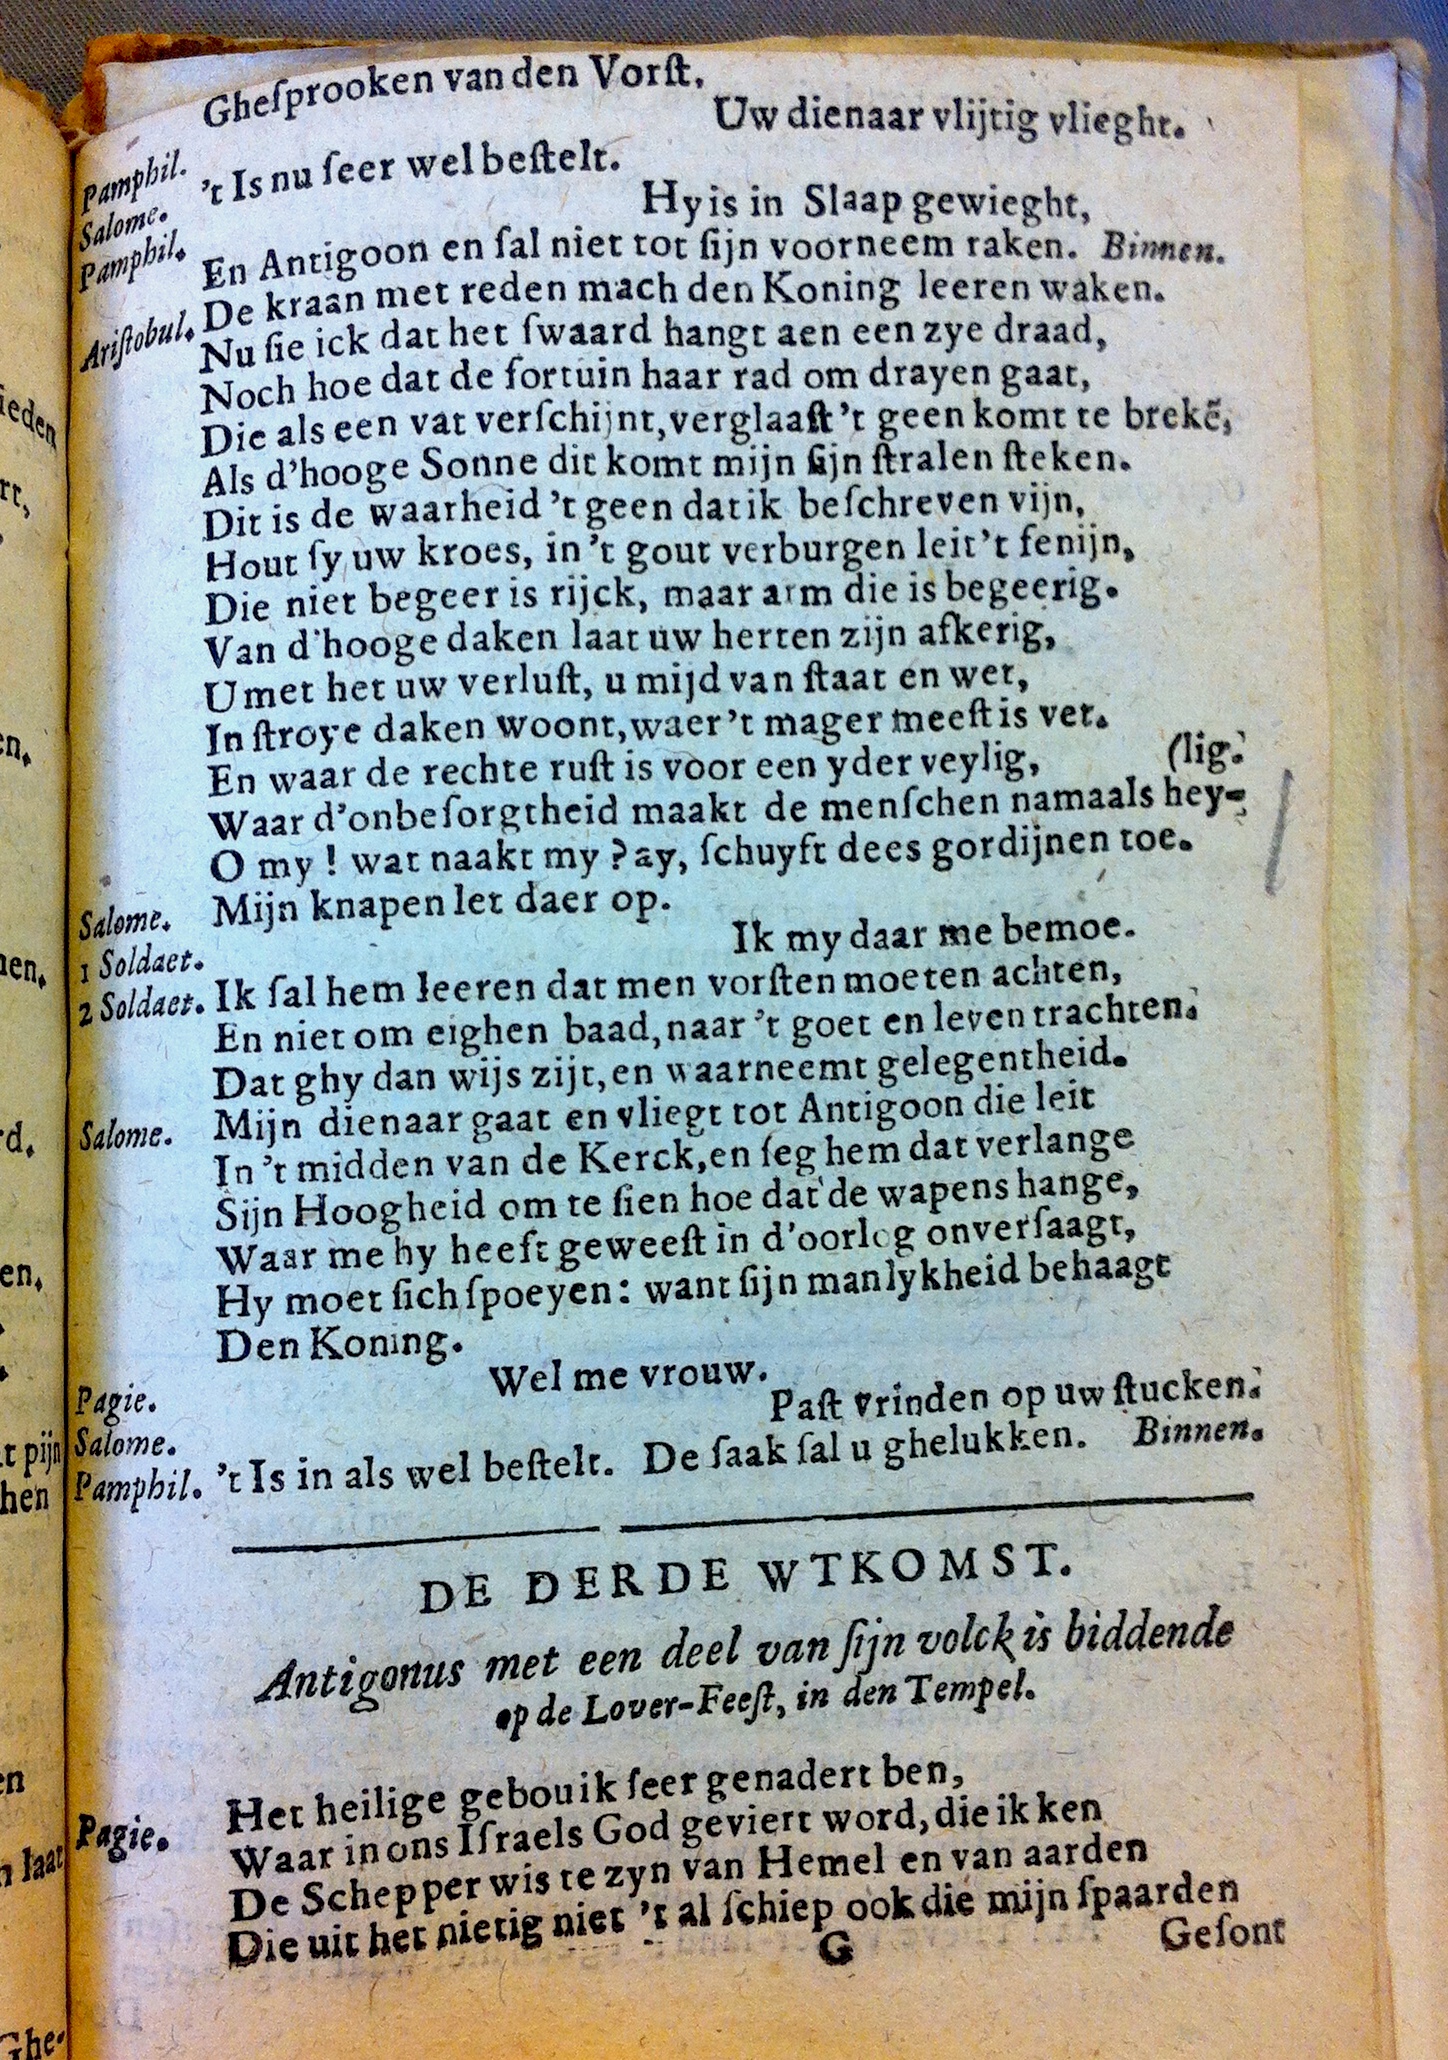 Gheſprooken van den Vorſt.
Pamphil. Uw dienaar vlijtig vlieght.
Salome. 't Is nu ſeer wel beſtelt.
Pamphil. Hy is in Slaap gewieght,
En Antigoon en ſal niet tot ſijn voorneem raken. Binnen.
Ariſtobul. De kraan met reden mach den Koning leeren waken.
Nu ſie ick dat het ſwaard hangt aen een zye draad,
Noch hoe dat de fortuin haar rad om drayen gaat,
Die als een vat verſchijnt, verglaaſt 't geen komt te brekē,
Als d'hooge Sonne dit komt mijn ſijn ſtralen ſteken.
Dit is de waarheid 't geen dat ik beſchreven vijn,
Hout ſy uw kroes, in 't gout verburgen leit 't fenijn,
Die niet begeer is rijck, maar arm die is begeerig.
Van d'hooge daken laat uw herten zijn afkerig,
U met het uw verluſt, u mijd van ſtaat en wet,
In ſtroye daken woont, waer 't mager meeſt is vet.
En waar de rechte ruſt is voor een yder veylig, (lig.
Waar d'onbeſorgtheid maakt de menſchen namaals hey-
O my ! wat naakt my ? ay, ſchuyft dees gordijnen toe.
Salome. Mijn knapen let daer op.
1 Soldaet. Ik my daar me bemoe.
2 Soldaet. Ik ſal hem leeren dat men vorſten moeten achten,
En niet om eighen baad, naar 't goet en leven trachten.
Dat ghy dan wijs zijt, en waarneemt gelegentheid.
Salome. Mijn dienaar gaat en vliegt tot Antigoon die leit
In 't midden van de Kerck, en ſeg hem dat verlange
Sijn Hoogheid om te ſien hoe dat de wapens hange,
Waar me hy heeft geweeſt in d'oorlog onverſaagt,
Hy moet ſich ſpoeyen: want ſijn manlykheid behaagt
Den Koning.
Pagie. Wel me vrouw.
Salome. Paſt vrinden op uw ſtucken.
Pamphil. 't Is in als wel beſtelt. De ſaak ſal u ghelukken. Binnen.
DE DERDE WTKOMST.
Antigonus met een deel van ſijn volck is biddende
op de Lover-Feeſt, in den Tempel.
Pagie. Het heilige gebou ik ſeer genadert ben,
Waar in ons Iſraels God geviert word, die ik ken
De Schepper wis te zyn van Hemel en van aarden
Die uit het nietig niet 't al ſchiep ook die mijn ſpaarden
G Geſont